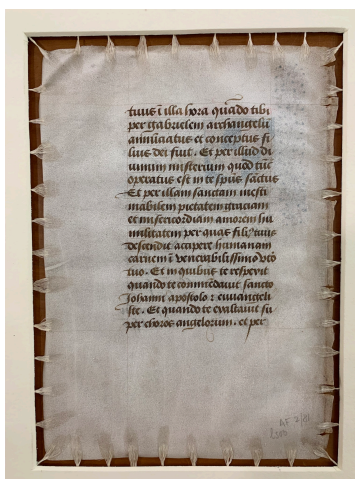 tuus ī illa hora qūado tibi
per gabrielem archangelū
annūciatus et conceptus fi
lius dei fuit. Et per illud di
uinum misterium quod tūc
operatus est in te spūs sanctus
Et per illam sanctam inesti
mabilem pietatem graciam
et misericordiam amorem hu
militatem per quas filiꝰ tuus
descendit accipere humanam
carnem ī venerabilissimo vtō
tuo. Et in quibus te respexit
quando te commēdauit sancto
Johanni apostolo : euuangeli
ste. Et quando te exaltauit su
per choros angelorum. et per